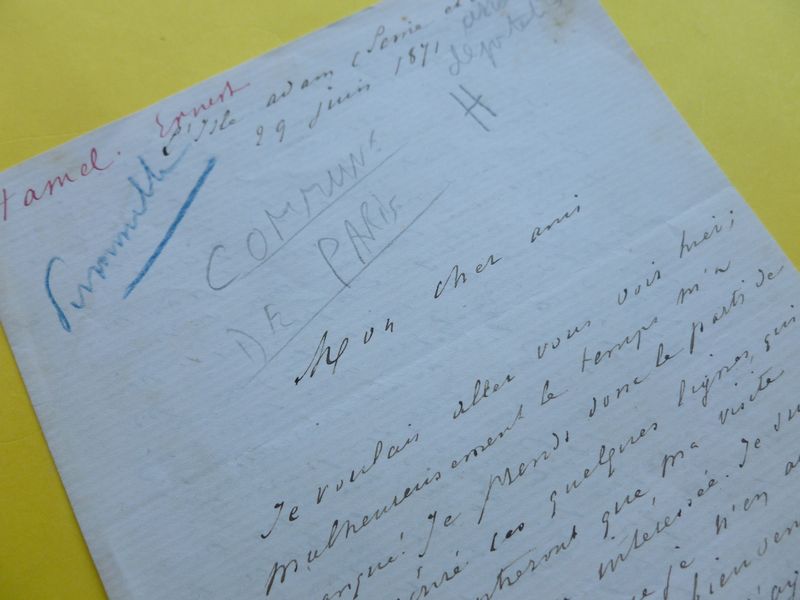 Hamel. Ernest
L'Isle adam (Seine et
29 juin 1871
H
COMMUNE
DE PARIS
Mon cher ami
Je voulais aller vous voir hier;
malheureusement le temps m'a
manqué. Je prends donc le parti de
ces quelques lignes, qui
que ma visite
intéressée. Je
je n'en